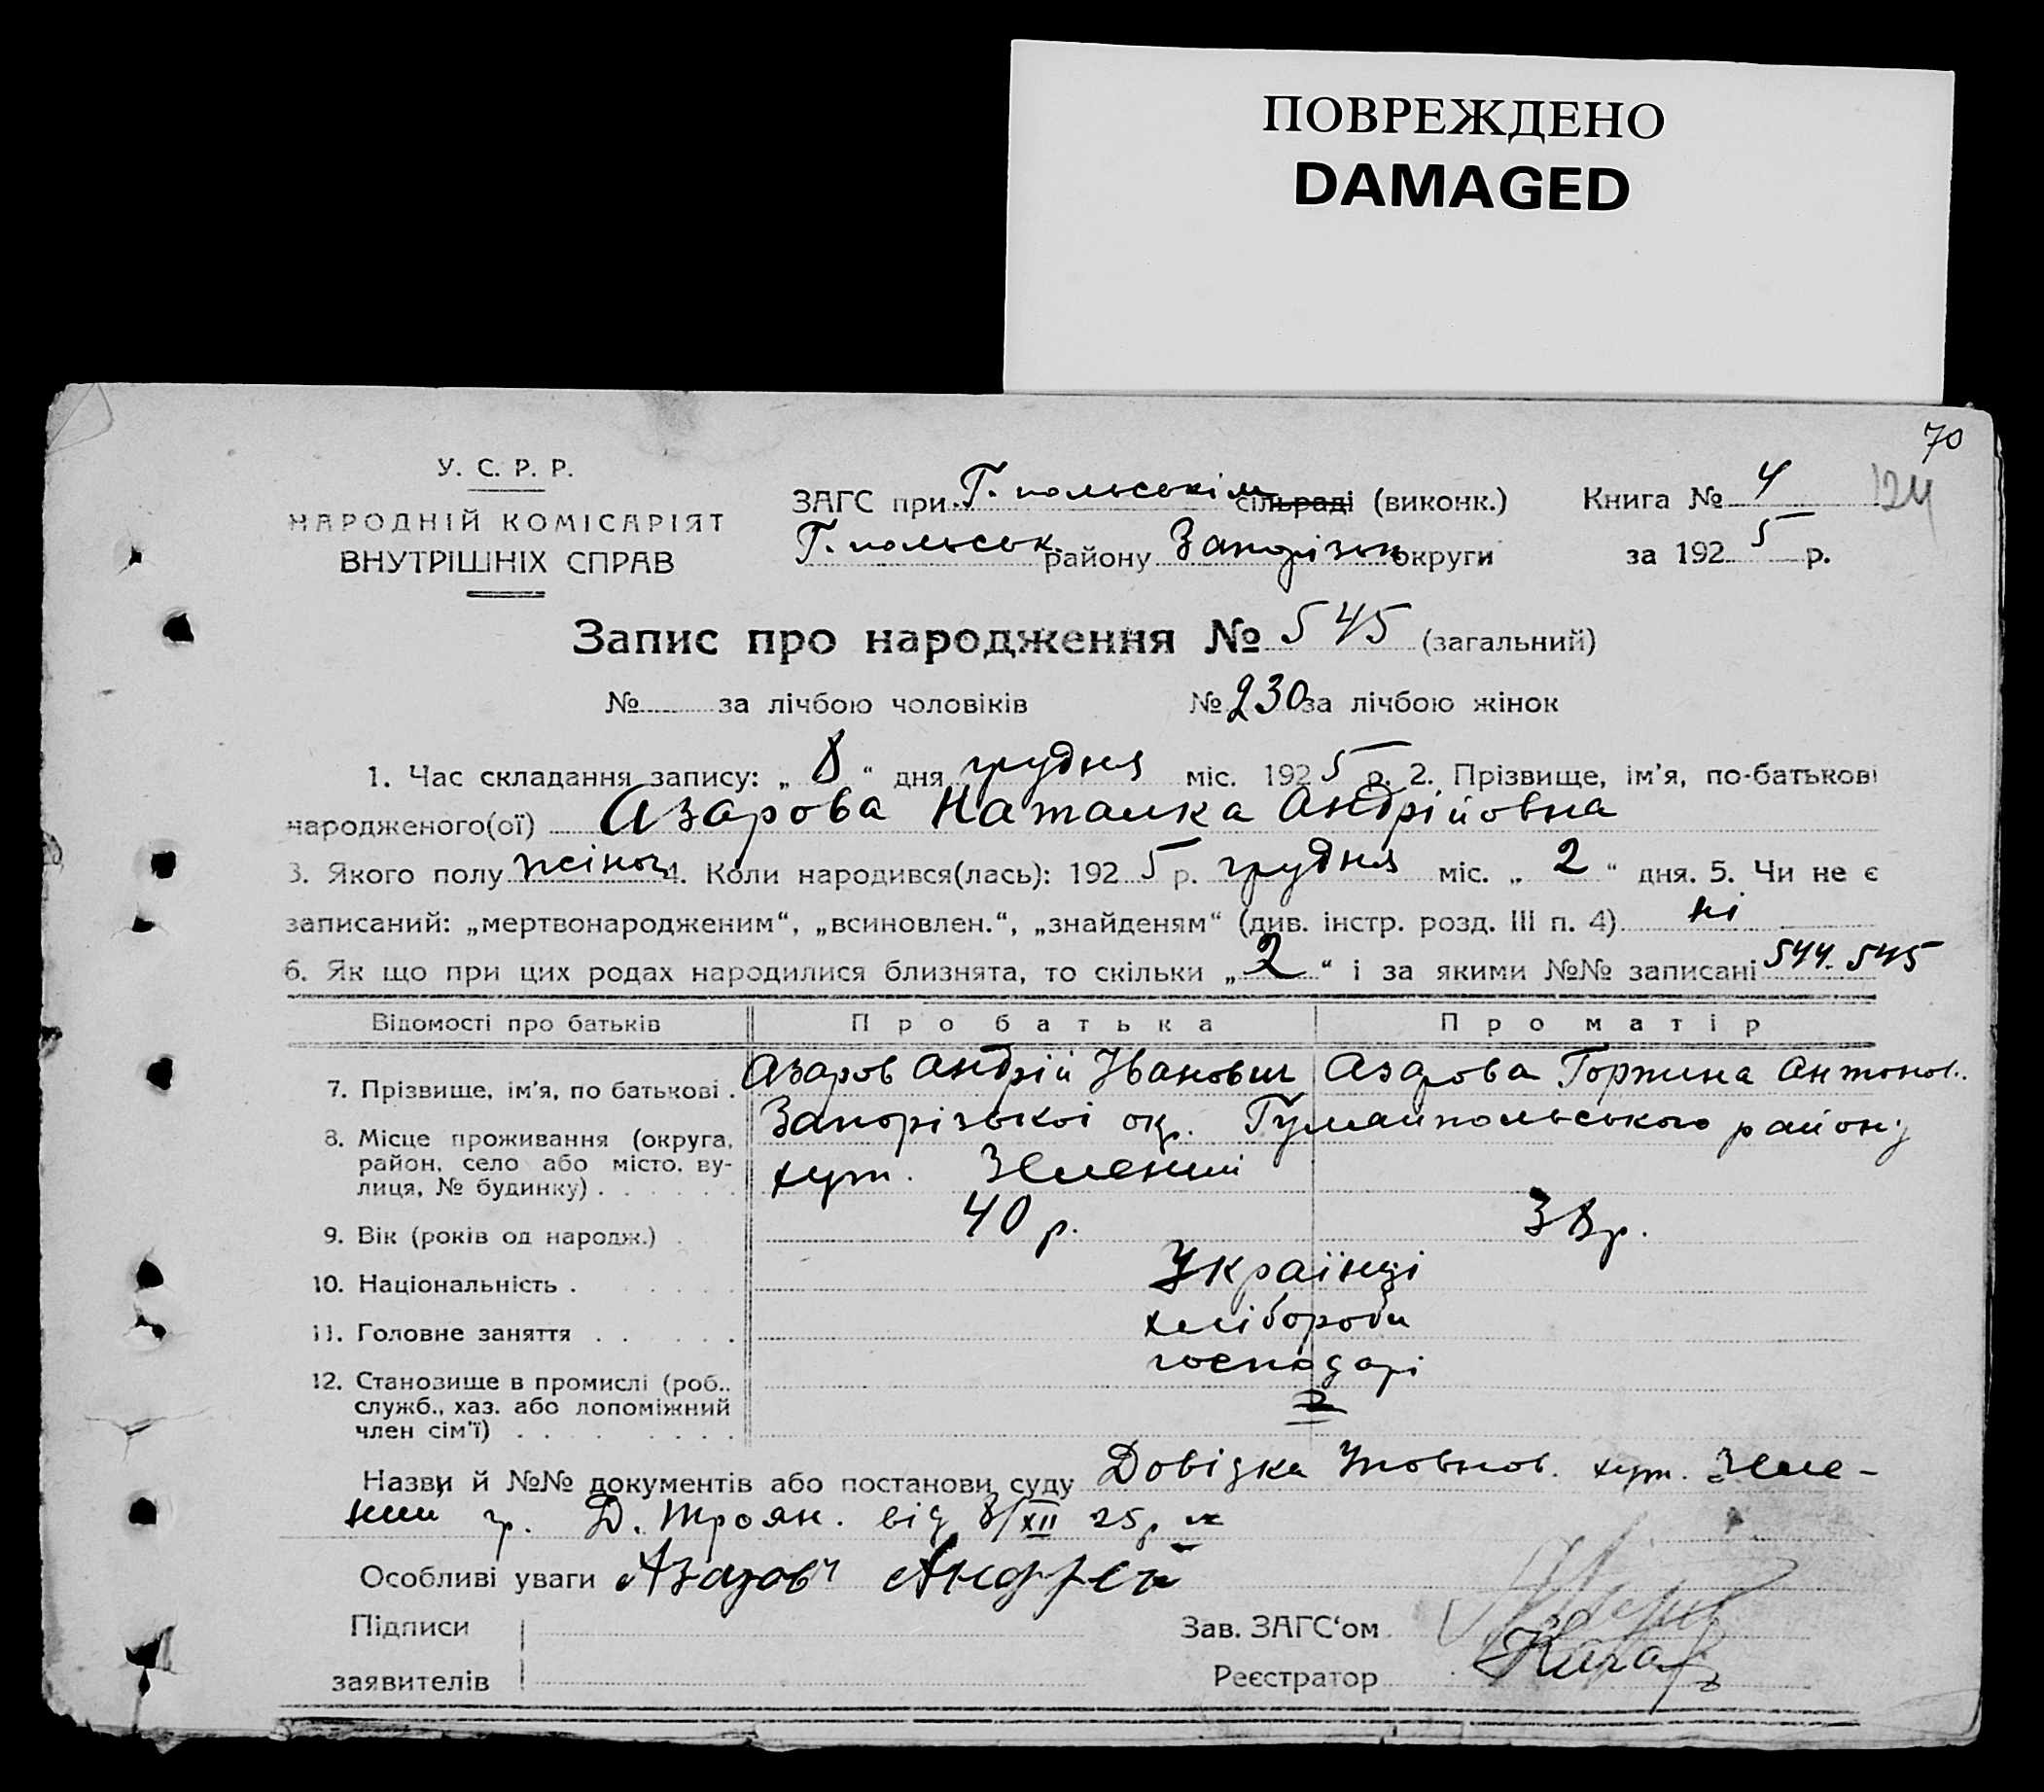 ПОВРЕЖДЕНО
DAMAGED
70
У. С. Р. Р.
НАРОДНІЙ КОМІСАРІЯТ
ВНУТРІШНІХ СПРАВ
ЗАГС при Г. польськім сільраді (виконк.) Книга № 4 124
Г. польськ. району Запорізьк округи за 192 5 р.
Запис про народження № 545 (загальний)
№ за лічбою чоловіків № 230 за лічбою жінок
1. Час складання запису: „ 8 “ дня грудня міс. 192 5 р. 2. Прізвище, ім'я, по-батькові
народженого(ої) Азарова Наталка Андрійовна
3. Якого полу жіноч 4. Коли народився(лась): 192 5 р. грудня міс. „ 2 “ дня. 5. Чи не є
записаний: „мертвонародженим“, „всиновлен.“, „знайденям“ (див. інстр. розд. III п. 4) ні
6. Як що при цих родах народилися близнята, то скільки „ 2 “ і за якими №№ записані 544. 545
Відомості про батьків Про батька Про матір
7. Прізвище, ім'я, по батькові . Азаров Андрій Іванович Азарова Горпина Антонов..
8. Місце проживання (округа, район, село або місто, ву-
лиця, № будинку) . Запорізької окр. Гуляйпольського району
хут. Зелений
9. Вік (років од народж.) . 40 р. 38 р.
10. Національність . Українці
11. Головне заняття . хлібороби
12. Становище в промислі (роб.. господарі
служб., хаз. або допоміжний 2
член сім'ї) .
Назви й №№ документів або постанови суду Довідка Уповнов. хут. Зеле-
ний гр. Д. Троян. від 8/XII 25 р
Особливі уваги Азаровъ Андрей
Підписи Зав. ЗАГС‘ом
заявителів Реєстратор